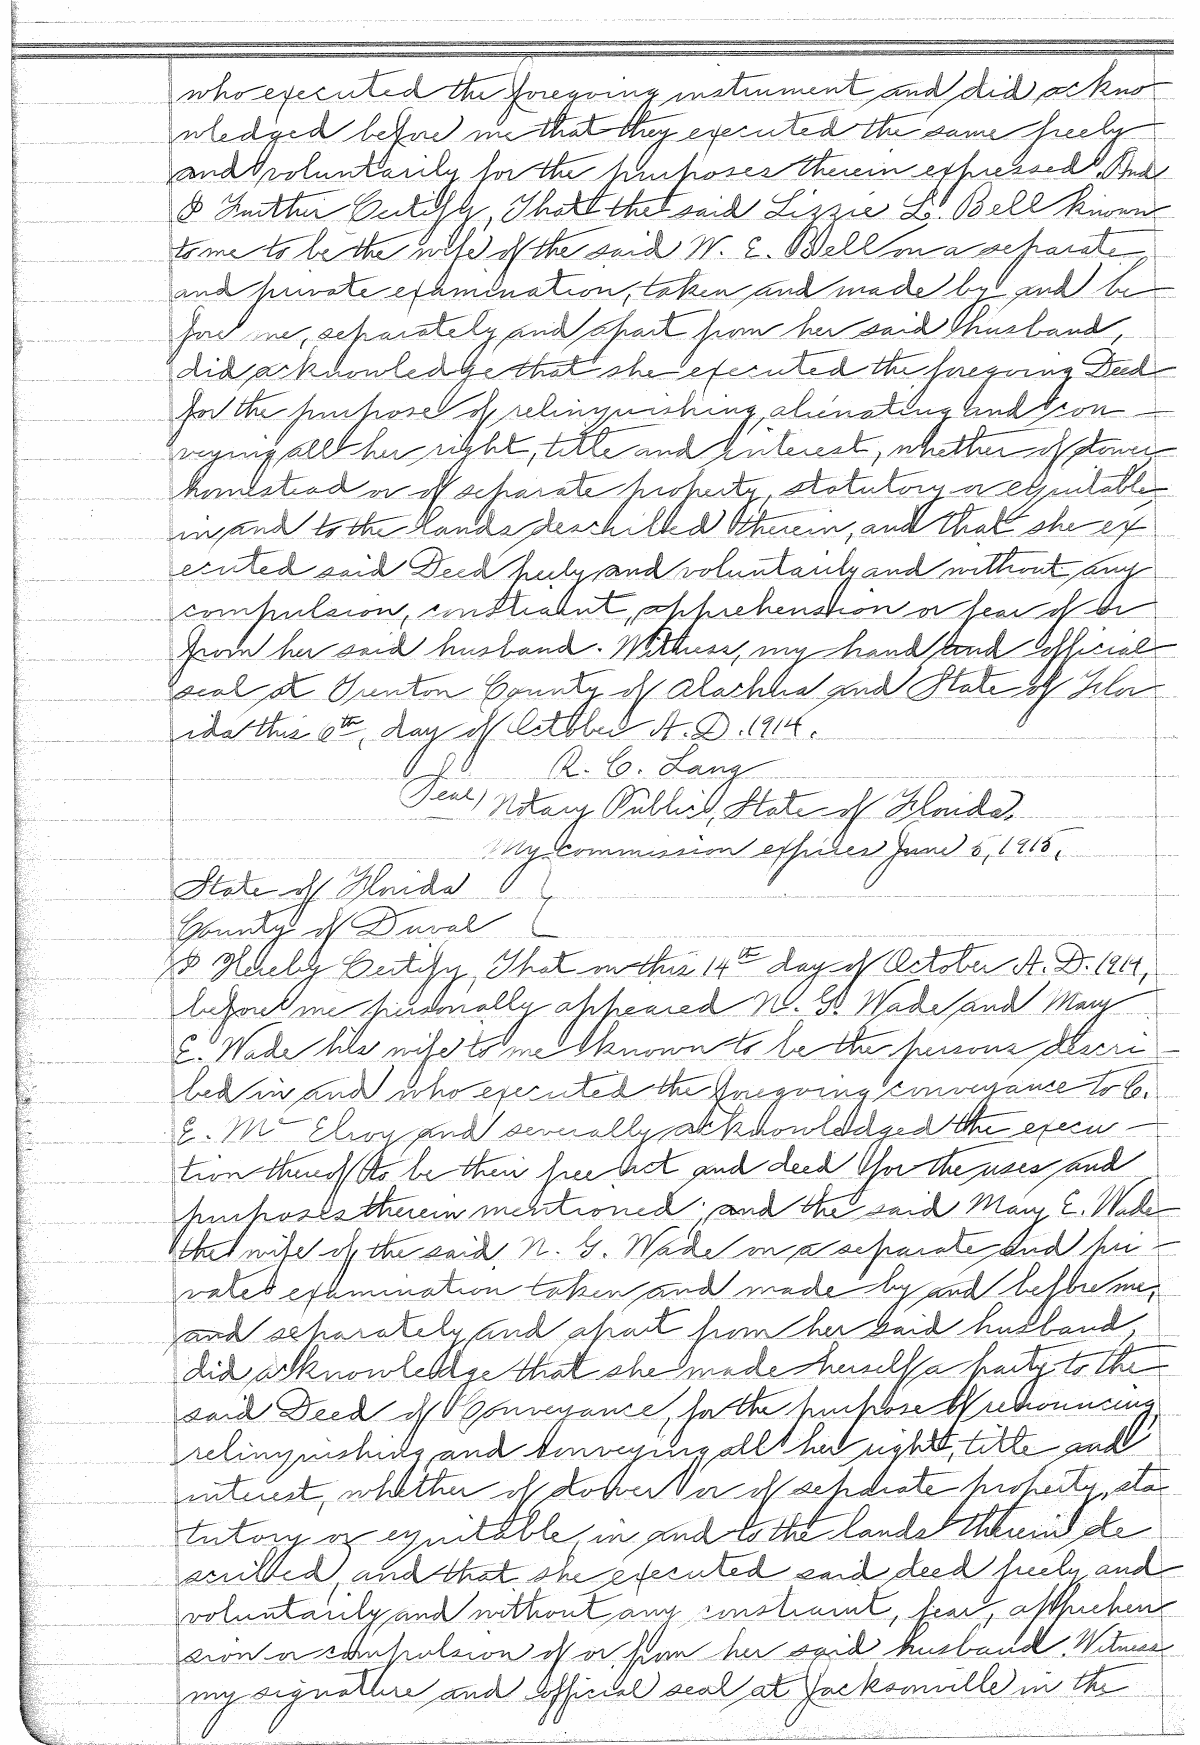 who executed the foregoing instrument and did ackno
wledged before me that they executed the same freely
and voluntarily for the purposes therein expressed. And
I Further Certify, That the said Lizzie L. Bell known
to me to be the wife of the said W. E. Bell on a separate
and private examination, taken and made by and be
fore me, separately and apart from her said husband,
did acknowledge that she executed the foregoing Deed
for the purpose of relinquishing, alienating and con —
veying all her right, title and interest, whether of dower
homestead or of separate property, statutory or equitable
in and to the lands described therein, and that she ex
ecuted said Deed freely and voluntarily and without any
compulsion, constraint, apprehension or fear of or
from her said husband. Witness, my hand and official
seal at Trenton County of Alachua and State of Flor
ida this 6th, day of October A. D. 1914.
R. C. Lang
(Seal) Notary Public, State of Florida.
My commission expires June 5, 1915.
State of Florida
County of Duval
I Hereby Certify, That on this 14th day of October A. D. 1914,
before me personally appeared N. G. Wade and Mary
E. Wade his wife to me known to be the persons descri —
bed in and who executed the foregoing conveyance to C.
E. McElroy and severally acknowledged the execu —
tion thereof to be their free act and deed for the uses and
purposes therein mentioned; and the said Mary E. Wade
the wife of the said N. G. Wade on a separate and pri —
vate examination taken and made by and before me,
and separately and apart from her said husband,
did acknowledge that she made herself a party to the
said Deed of Conveyance, for the purpose of renouncing,
relinquishing and conveying all her right, title and
interest, whether of dower or of separate property, sta
tutory or equitable, in and to the lands therein de
scribed, and that she executed said deed freely and
voluntarily and without any constraint, fear, apprehen
sion or compulsion of or from her said husband. Witness
my signature and official seal at Jacksonville in the